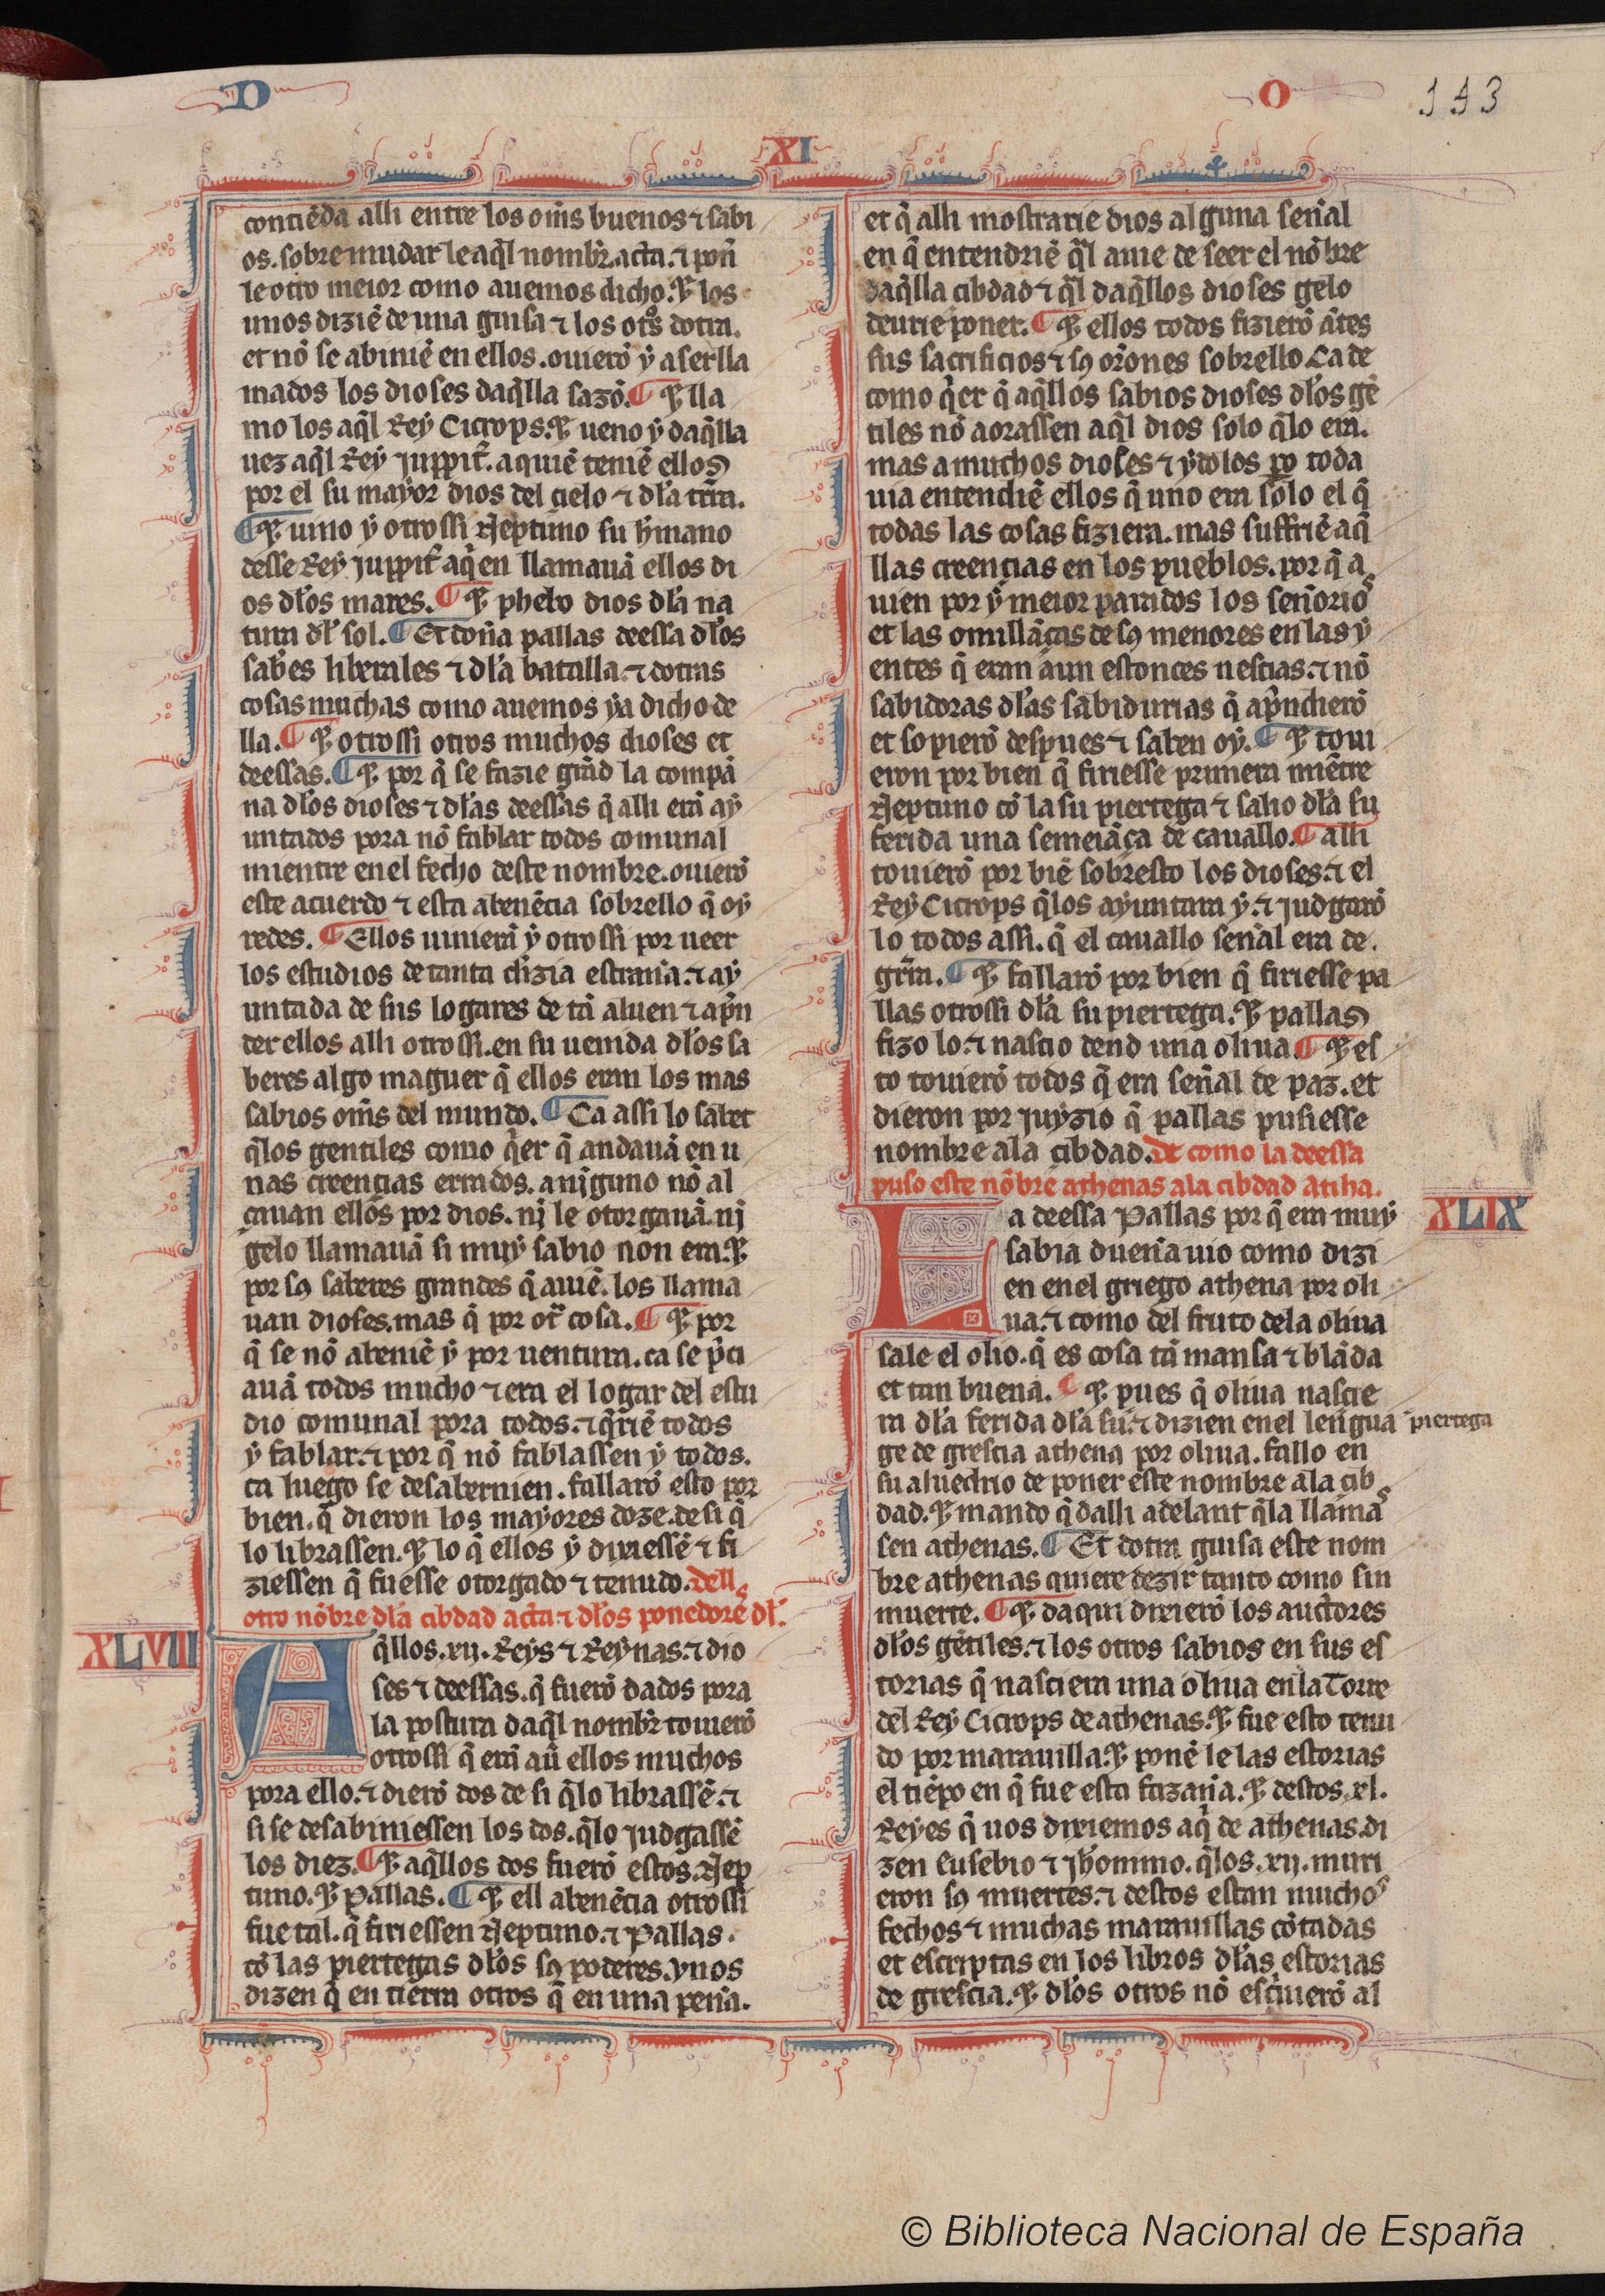 D
O
153
XI
contiẽda alli entre los om̃s buenos ⁊ sabi
os. sobre mudar le aq̃l nombr̃. acta. ⁊ pon̄
le otro meior como auemos dicho. ⁊ los
unos diziẽ de una guisa ⁊ los ot̃s dotra.
et nõ se abiniẽ en ellos. ouierõ ẏ a ser lla
mados los dioses daq̃lla sazõ. ¶ ⁊ lla
mo los aq̃l Rey Cicrops. ⁊ ueno ẏ daq̃lla
uez aq̃l Rey juppit̃. a quiẽ teniẽ ellos
por el su mayor dios del çielo ⁊ dła tr̃ra.
¶ ⁊ uino ẏ otrossi Neptuno su h̃mano
desse Rey juppit̃ aq̃en llamauã ellos di
os dłos mares. ¶ ⁊ phebo dios dła na
tura dł sol. ¶ Et doña pallas deessa dłos
sab̃es liberales ⁊ dła batalla. ⁊ dotras
cosas muchas como auemos ya dicho de
lla. ¶ ⁊ otrossi otros muchos dioses et
deessas. ¶ ⁊ por q̃ se fazie grãd la compã
na dłos dioses ⁊ dłas deessas q̃ alli erã aẏ
untados pora nõ fablar todos comunal
mientre en el fecho deste nombre. ouierõ
este acuerdo ⁊ esta abenẽcia sobrello q̃ oẏ
redes. ¶ Ellos uinierã ẏ otrossi por ueer
los estudios de tanta cl̃izia estraña. ⁊ aẏ
untada de sus logares de tã aluen ⁊ ap̃n
der ellos alli otrossi. en su uenida dłos sa
beres algo maguer q̃ ellos eran los mas
sabios om̃s del mundo. ¶ Ca assi lo sabet
q̃los gentiles como q̃er q̃ andauã en u
nas creençias erradas. a nj̃guno nõ al
çauan ellos por dios. nj̃ le otorgauã. nj̃
gelo llamauã si muẏ sabio non era. ⁊
por sꝰ saberes grandes q̃ auiẽ. los llama
uan dioses. mas q̃ por ot̃ cosa. ¶ ⁊ por
q̃ se nõ abeniẽ ẏ por uentura. ca se p̃ci
auã todos mucho ⁊ era el logar del estu
dio comunal pora todos. ⁊ q̃rriẽ todos
ẏ fablar. ⁊ por q̃ nõ fablassen ẏ todos.
ca luego se desabernien. fallarõ esto por
bien. q̃ dieron los mayores doze. de si q̃
lo librassen. ⁊ lo q̃ ellos ẏ dixiessẽ ⁊ fi
ziessen q̃ fuesse otorgado ⁊ tenudo. dell
otro nõbre dła cibdad acta ⁊ dłos ponedores dł.
XLVII
Aq̃llos .xij. Reys ⁊ Reynas. ⁊ dio
ses ⁊ deessas. q̃ fuerõ dados pora
la postura daq̃l nombr̃ touierõ
otrossi q̃ erã aũ ellos muchos
pora ello. ⁊ dierõ dos de si q̃lo librassẽ. ⁊
si se desabiniessen los dos. q̃lo judgassẽ
los diez. ¶ ⁊ aq̃llos dos fuerõ estos. Nep
tuno. ⁊ Pallas. ¶ ⁊ ell abenẽcia otrossi
fue tal. q̃ firiessen Neptuno. ⁊ Pallas.
cõ las piertegas dłos sꝰ poderes. ynos
dizen q̃ en tierra otros q̃ en una peña.
et q̃ alli mostrarie dios alguna señal
en q̃ entendriẽ q̃l auie de seer el nõbre
daq̃lla cibdad ⁊ q̃l daq̃llos dioses gelo
deurie poner. ¶ ⁊ ellos todos fizierõ ãtes
sus sacrificios ⁊ sꝰ or̃ones sobrello. Ca de
como q̃er q̃ aq̃llos sabios dioses dłos gẽ
tiles nõ aorassen aq̃l dios solo q̃lo era.
mas a muchos dioses ⁊ ydolos po toda
uia entendiẽ ellos q̃ uno era solo el q̃
todas las cosas fiziera. mas suffriẽ aq̃
llas creençias en los pueblos. por q̃ a
uien por ẏ meior parados los señorios
et las omillãças de sꝰ menores en las ẏ
entes q̃ eran aun estonces nescias. ⁊ nõ
sabidoras dłas sabidurias q̃ ap̃ndierõ
et sopierõ despues ⁊ saben oẏ. ¶ ⁊ toui
eron por bien q̃ firiesse primera miẽtre
Neptuno cõ la su piertega ⁊ salio dła su
ferida una semeiãça de cauallo. ¶ alli
touierõ por biẽ sobresto los dioses. ⁊ el
Rey Cicrops q̃los ayuntara ẏ. ⁊ judgarõ
lo todos assi. q̃ el cauallo señal era de
gr̃ra. ¶ ⁊ fallarõ por bien q̃ firiesse pa
llas otrossi dła su piertega. ⁊ pallas
fizo lo. ⁊ nascio dend una oliua. ¶ ⁊ es
to touierõ todos q̃ era señal de paz. et
dieron por juyzio q̃ pallas pusiesse
nombre ala cibdad. De como la deessa
puso este nõbre athenas ala cibdad atiha.
XLIX
La deessa Pallas por q̃ era muẏ
sabia dueña uio como dizi
en en el griego athena por oli
ua. ⁊ como del fruto dela oliua
sale el olio. q̃ es cosa tã mansa ⁊ blãda
et tan buena. ¶ ⁊ pues q̃ oliua nascie
ra dła ferida dła su. ⁊ dizien en el lengua piertega
ge de grescia athena por oliua. fallo en
su aluedrio de poner este nombre ala cib
dad. ⁊ mando q̃ dalli adelant q̃la llamas
sen athenas. ¶ Et dotra guisa este nom
bre athenas quiere dezir tanto como sin
muerte. ¶ ⁊ daqui dixierõ los auctores
dłos gẽtiles. ⁊ los otros sabios en sus es
torias q̃ nasciera una oliua en la Torre
del Rey Cicrops de athenas. ⁊ fue esto tenu
do por marauilla. ⁊ ponẽ le las estorias
el tiẽpo en q̃ fue esta fazaña. ⁊ destos .xl.
Reyes q̃ uos dixiemos aq̃ de athenas. di
zen Eusebio ⁊ jh̃onimo. q̃los .xij. muri
eron sꝰ muertes. ⁊ destos estan muchos
fechos ⁊ muchas marauillas cõtadas
et escriptas en los libros dłas estorias
de grescia. ⁊ dłos otros nõ escriuierõ al
© Biblioteca Nacional de España